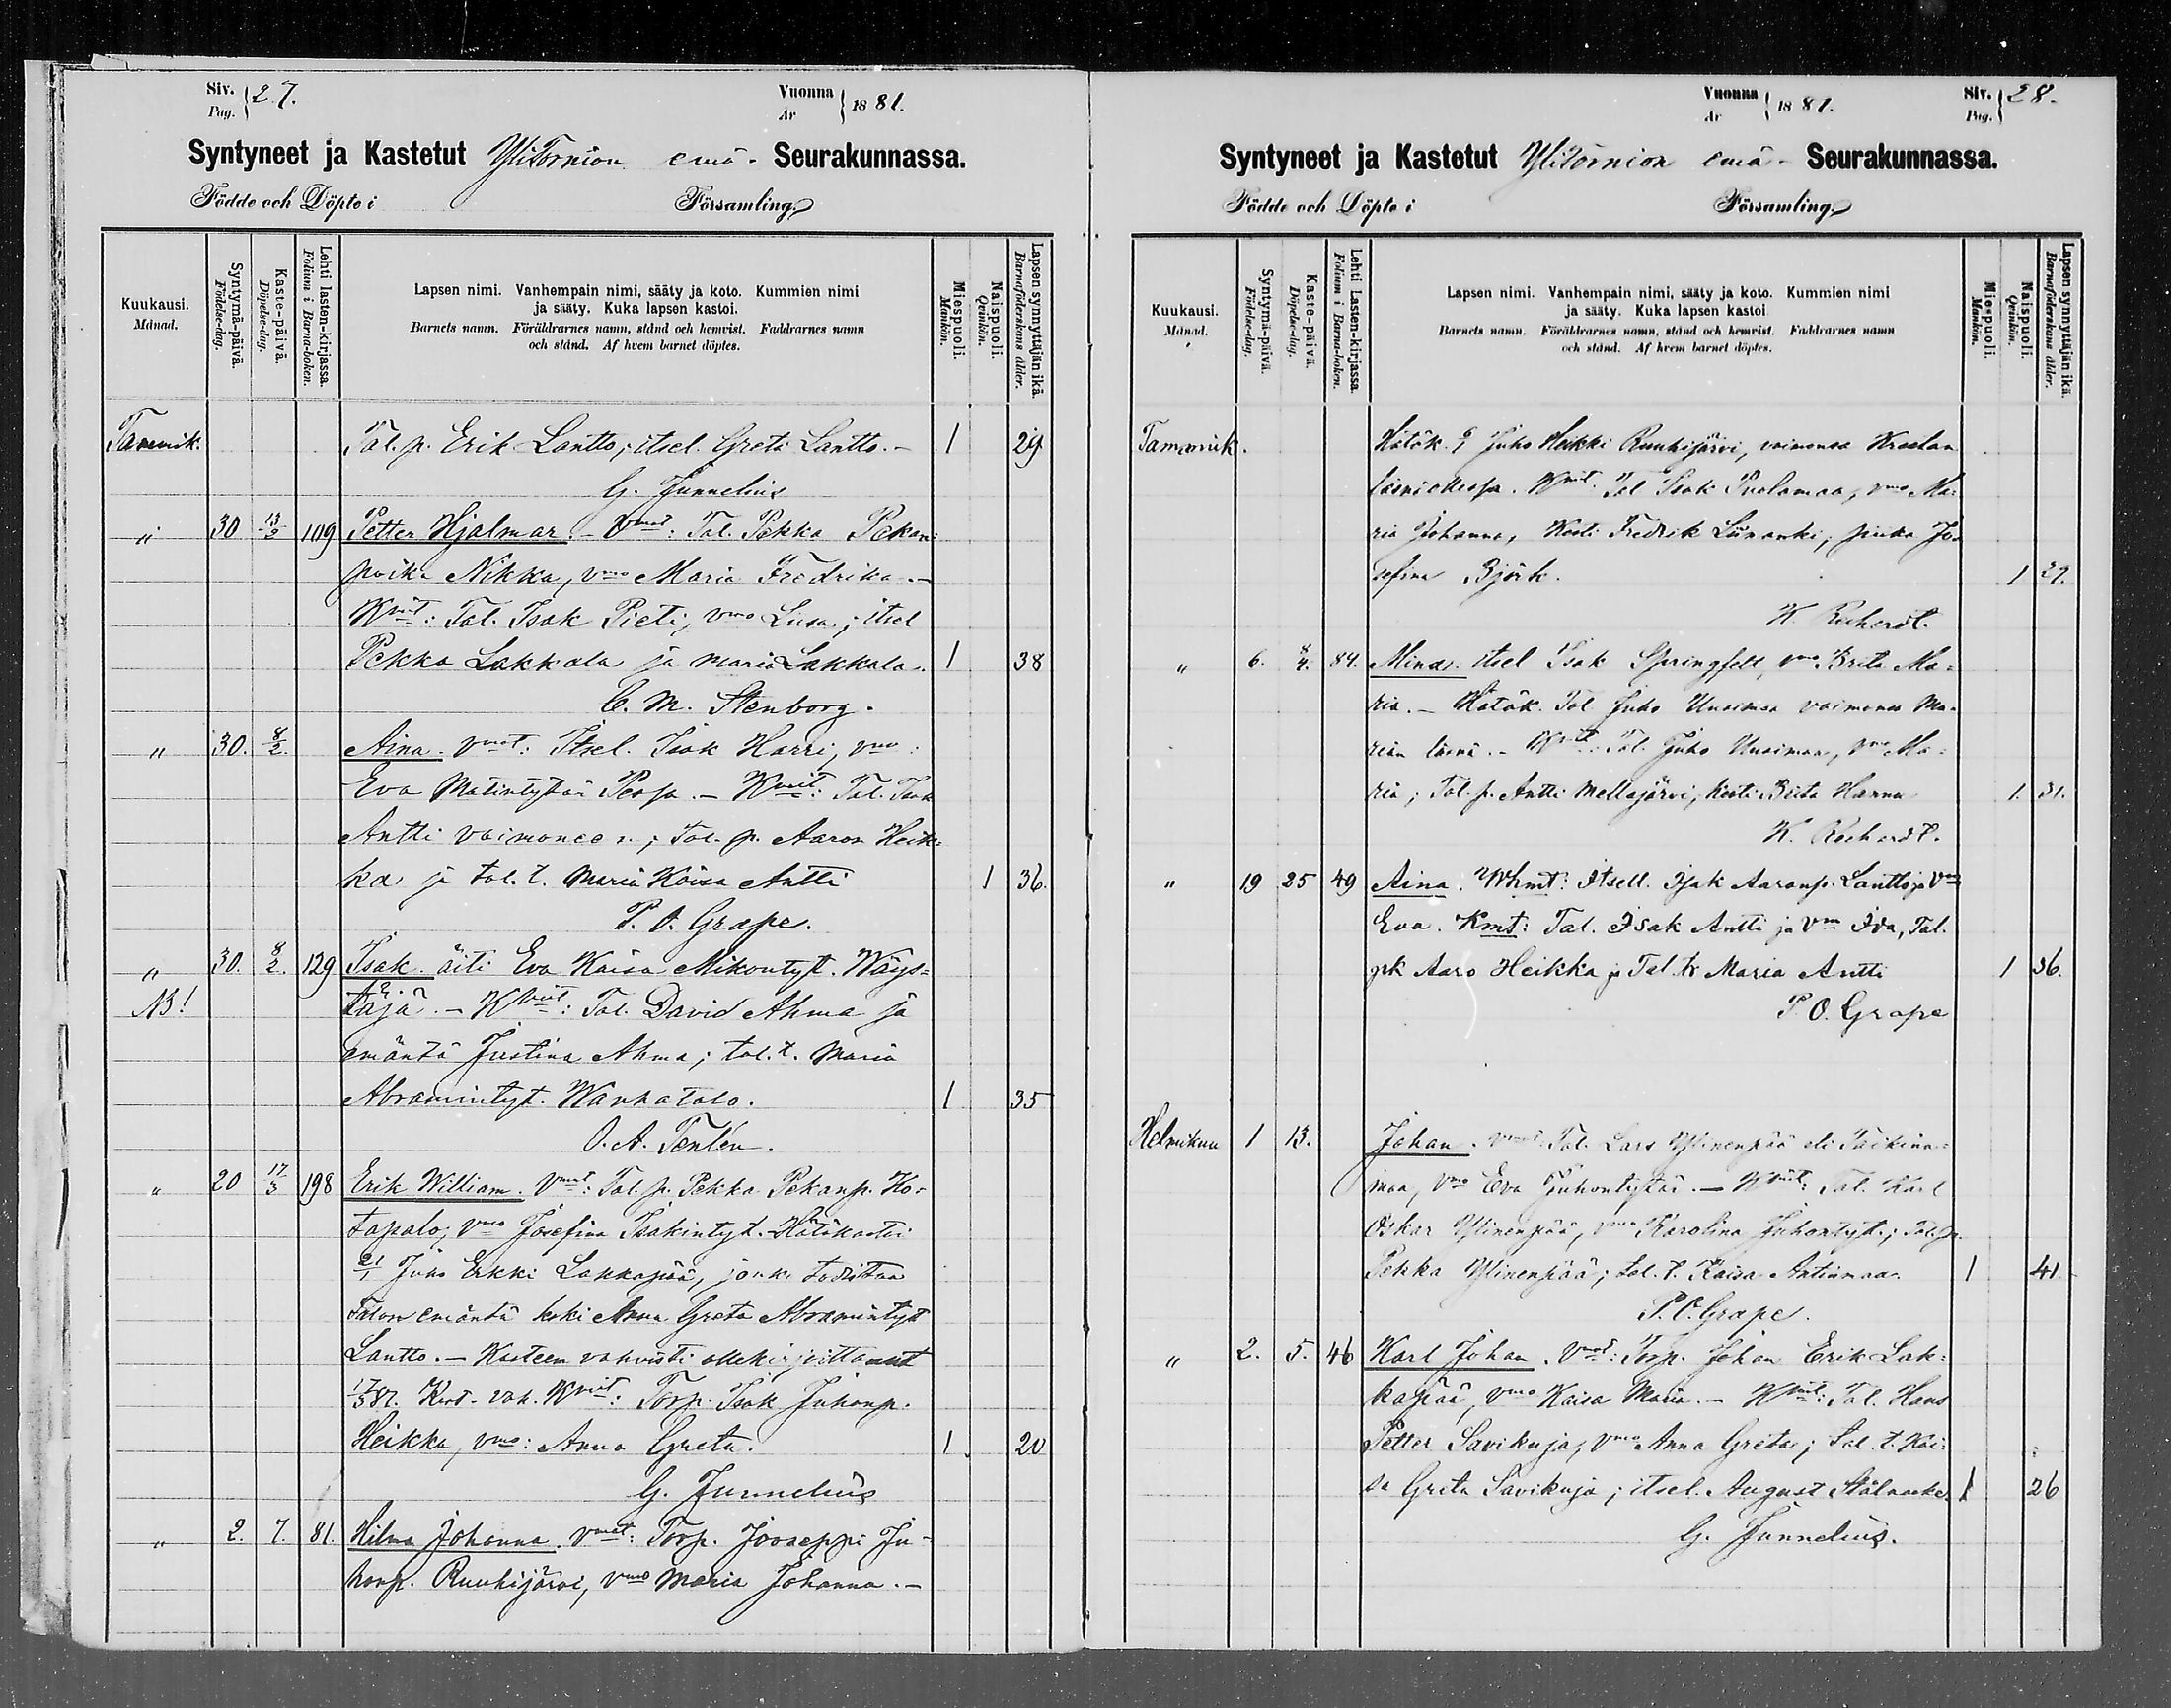 Siv. 27.
Pag.
Vuonna 1881.
År
Syntyneet ja Kastetut YliTornion emä- Seurakunnassa.
Födde och Döpte i Församling.
Kuukausi.
Månad.
Syntymä-päivä.
Födelse-dag.
Kaste-päivä.
Döpelse-dag.
Lehti lasten-kirjassa.
Folium i Barna-boken.
Lapsen nimi. Vanhempain nimi, sääty ja koto. Kummien nimi
ja sääty. Kuka lapsen kastoi.
Barnets namn. Föräldrarnes namn, stånd och hemvist. Faddrarnes namn
och stånd. Af hvem barnet döptes.
Miespuoli.
Mankön.
Naispuoli.
Qvinkön.
Lapsen synnyttäjän ikä.
Barnaföderskans ålder.
Tammik. Tal. p. Erik Lantto; itsel. Greta Lantto. - 1 29
G. Junnelius
" 30 13/2 109 Petter Hjalmar. - Vmt: Tal. Pekka Pekan-
poika Nikka, vmo Maria Fredrika. -
Kmit: Tal. Isak Pieti, vmo Liisa; itsel
Pekka Lakkala ja Maria Lakkala. 1 38
C. M. Stenborg.
" 30. 8/2. Aina. Vmt: Itsel. Isak Harri, vmo:
Eva Matintytär Peso. - Kmit: Tal. Isak
Antti vaimonee n.; Tal. p. Aaron Heik-
ka ja tal. t. Maria Kaisa Antti 1 36.
P. O. Grape.
" 30. 8/2. 129 Isak. äiti Eva Kaisa Mikontyt. Wäys-
NB! täjä. - Kmit: Tal. David Ahma ja
emäntä Justina Ahma; tal. t. Maria
Abramintyt. Wanhatalo. 1 35
O. A. Tenlén.
" 20 17/3 198 Erik William. Vmt: Tal. p. Pekka Pekanp. Ko-
tapalo, vmo Josefina Isakintyt. Hätäkastoi
21/1 Juho Erkki Lakkapää, jonka todistaa
Talon emäntä leski Anna Greta Abramintyt
Lantto. - Kasteen vahvisti allekirjoittanut
17/3 81. Kast. vah. Kmit: Torp. Isak Juhonp.
Heikka, vmo: Anna Greta. 1 20
G. Junnelius
" 2. 7. 81. Hilma Johanna. Vmt: Torp. Jooseppi Ju-
honp. Ruuhijärvi, vmo Maria Johanna. -
Vuonna 1881.
År
Siv. 28.
Pag.
Syntyneet ja Kastetut YliTornion emä- Seurakunnassa.
Födde och Döpte i Församling.
Kuukausi.
Månad.
Syntymä-päivä.
Födelse-dag.
Kaste-päivä.
Döpelse-dag.
Lehti Lasten-kirjassa.
Folium i Barna-boken.
Lapsen nimi. Vanhempain nimi, sääty ja koto. Kummien nimi
ja sääty. Kuka lapsen kastoi
Barnets namn. Föräldrarnes namn, stånd och hemvist. Faddrarnes namn
och stånd. Af hvem barnet döptes.
Miespuoli.
Mankön.
Naispuoli.
Qvinkön.
Lapsen synnyttäjän ikä.
Barnaföderskans ålder.
Tammik. Hätäk. Juho Heikki Ruuhijärvi, vaimonsa
Kmit: Tal Isak Puolamaa, vmo Ma-
ria Johanna, Fredrik Liinanki, piika Jo-
sefina Björk. 1 27.
" 6. 8/4. 84. Mina. itsel Isak Springfelt, vmo Brita Ma-
ria. - Hätäk. Tal Juho Uusimaa vaimonsa Ma-
rian läsnä. - Kmit: Tal. Juho Uusimaa, vmo Ma-
ria; Tal. p. Antti Mellajärvi, Brita Hannu 1. 31.
" 19 25 49 Aina. Whmt: Itsell. Isak Aaronp. Lantto ja Vmo
Eva. Kmt: Tal. Isak Antti ja Vm Ida, Tal.
pk Aaro Heikka ja Tal. tr Maria Antti 1 36.
P. O. Grape
Helmikuu 1 13. Johan. Vmt: Tal. Lars Ylinenpää eli Päkinä-
maa, vmo Eva Juhontytär. - Kmit: Tal. Karl
Oskar Ylinenpää, vmo Karolina Juhontyt.; Tal. p.
Pekka Ylinenpää; tal. t. Kaisa Antinmaa. 1 41
P. O. Grape.
" 2. 5. 46 Karl Johan. Vmt: Torp. Johan Erik Lak-
kapää, vmo Kaisa Maria. - Kmit: Tal. Hans
Petter Savikuja, vmo Anna Greta; tal. t. Kai-
sa Greta Savikuja; itsel. August Stålnacke. 1 26
G. Junnelius.